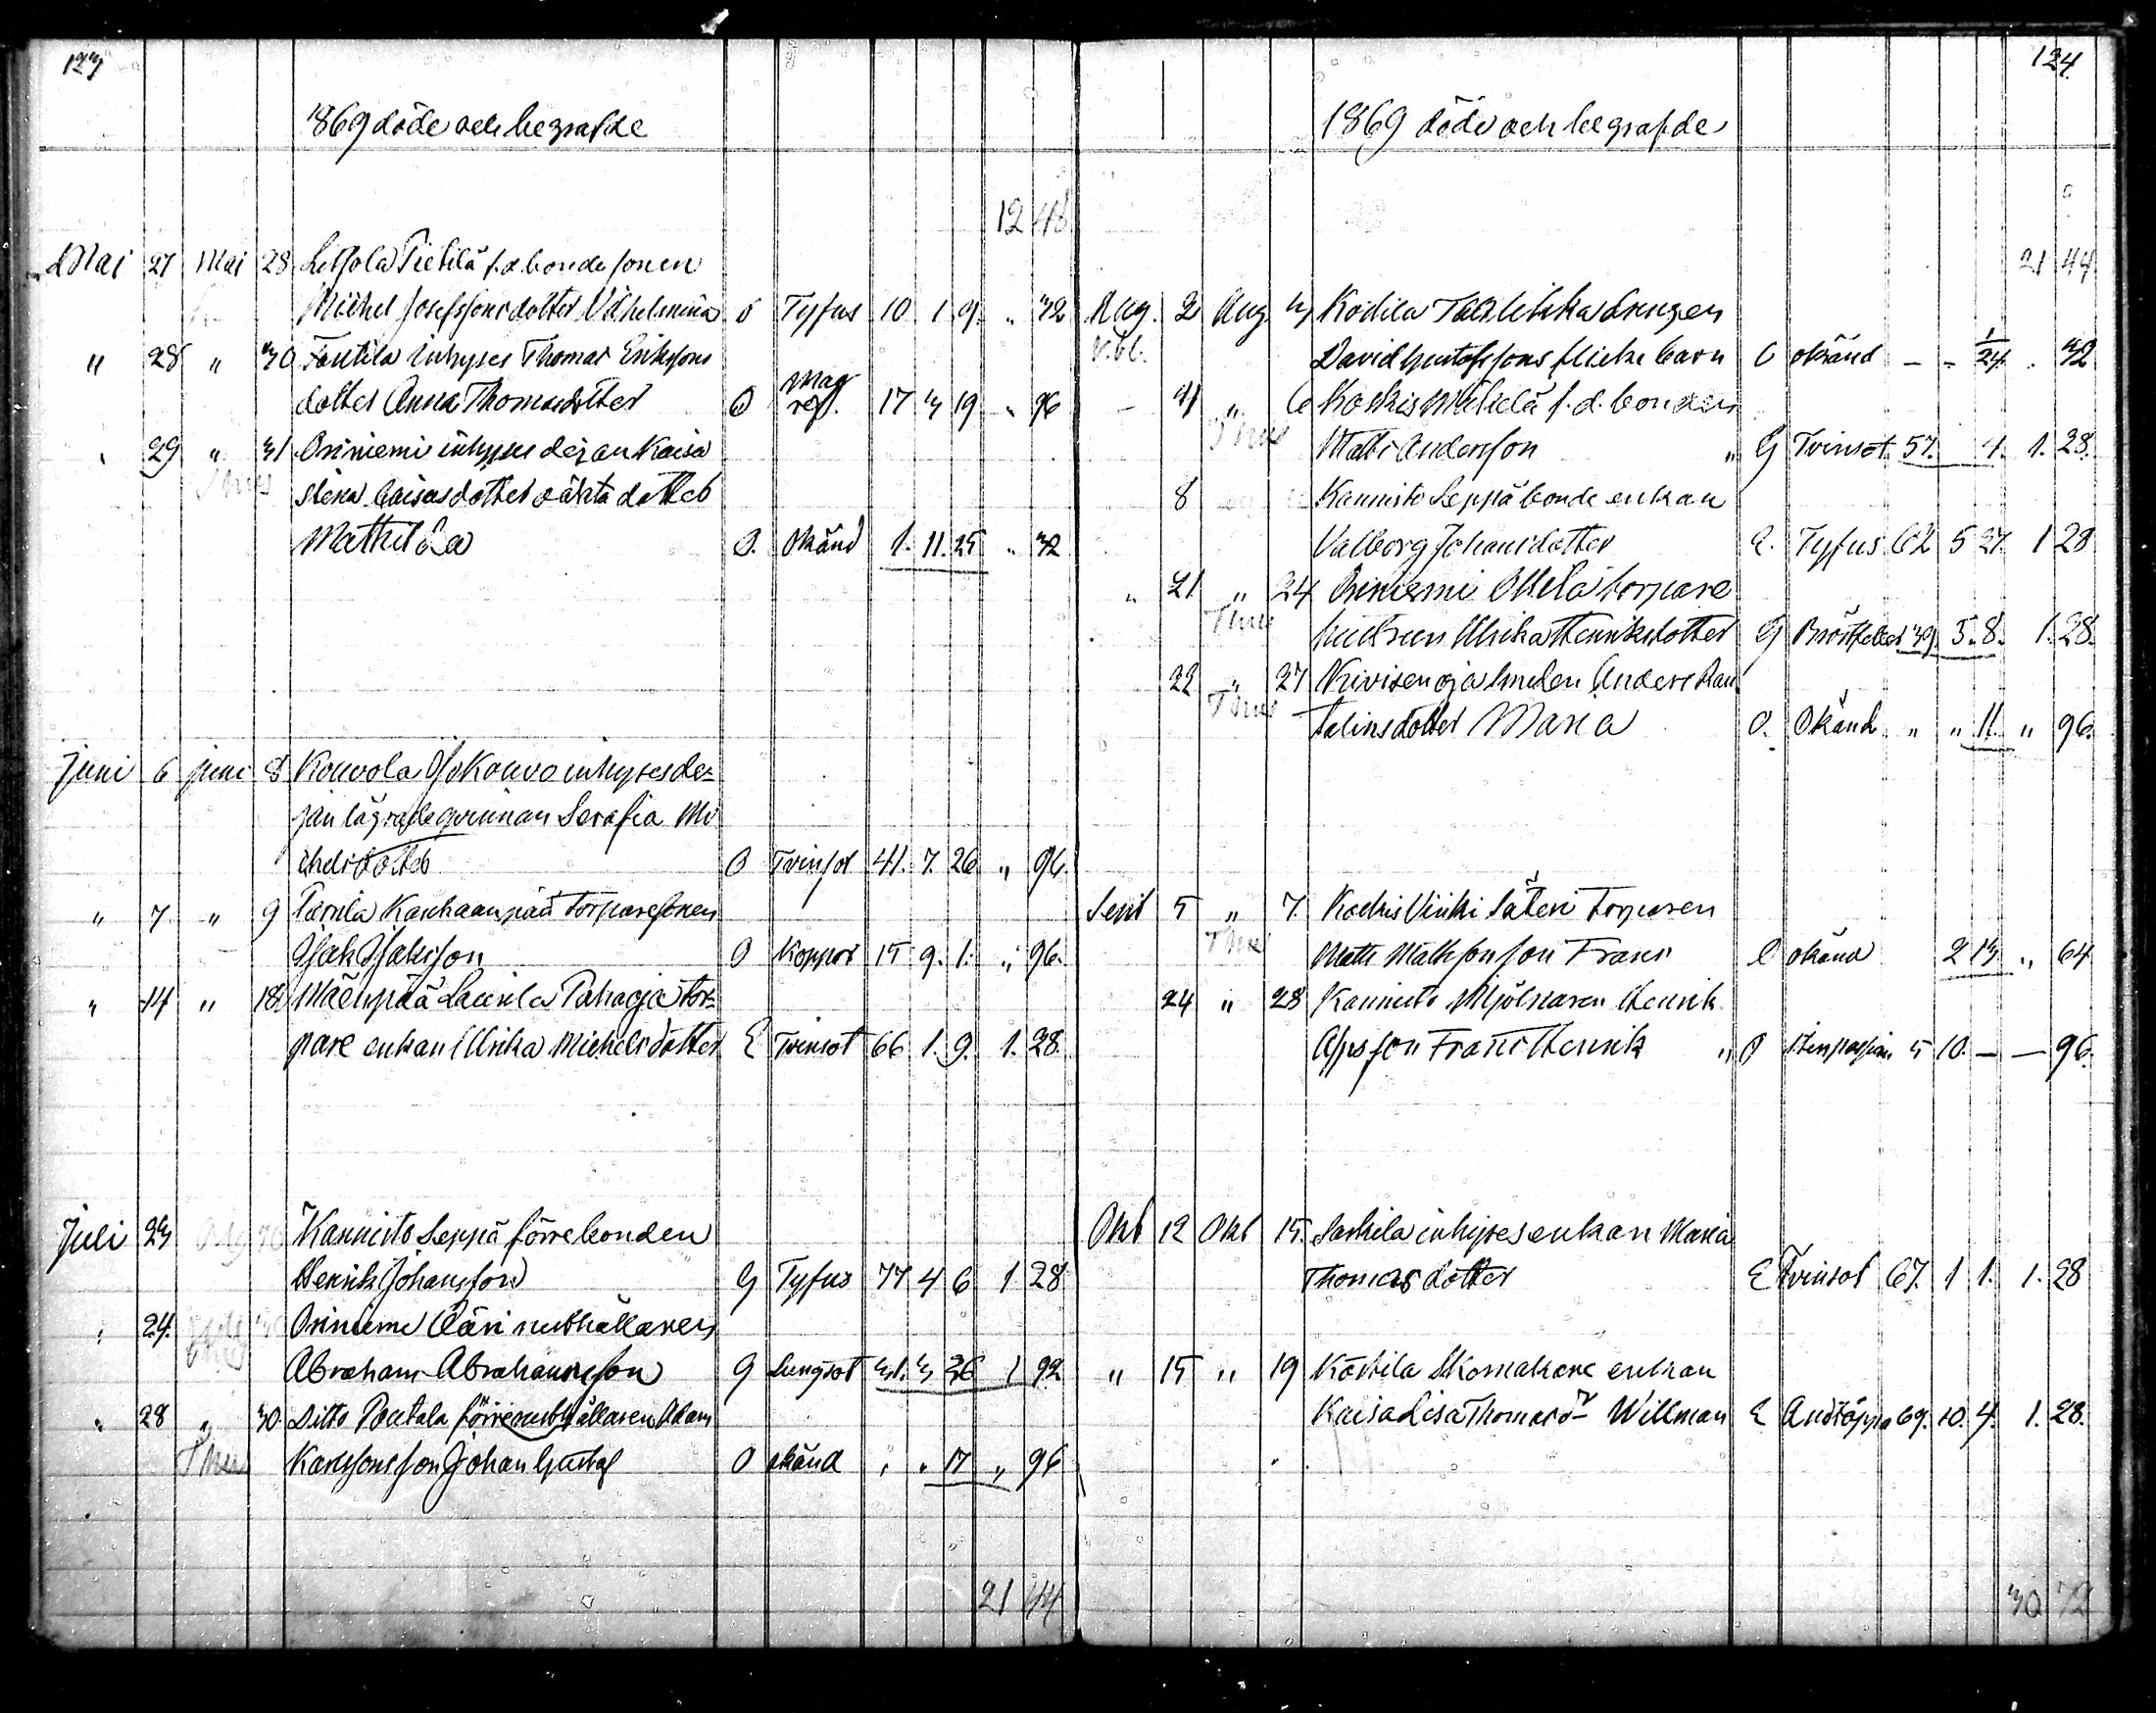 123
1869 döde och begrafde
12 48
Mai 27 Mai 28 Leikola Pietilä f.d. bonde sonen
Michel Josefssons dotter Vilhelmina O Tyfus 10 1 9 " 32
" 28 " 30 Fantila inhyses Thomas Erikssons
dotter Anna Thomasdotter O Mag ref. 17 3 19 " 96
" 29 " 31 Oriniemi inhyses dejan Kaisa
Thus Stina Caisasdotter oäkta dotter
Mathilda O. Okänd 1. 11. 25 " 32
Juni 6 Juni 8 Kouvola inhyses de=
jan lägrade qvinnan Serafia Mi
chelsdotter O Tvinsot 41. 7. 26 " 96.
" 7. " 9 Pärnila Kanhaanpää Torparesonen
Isak Isaksson O Koppor 15 9. 1. " 96.
" 14 " 18 Mäenpää Laurila Pahaoja tor=
pare enkan Ulrika Michelsdotter E Tvinsot 66 1. 9. 1. 28.
Juli 23 Kannisto Seppä förre bonden
Henrik Johansson G Tyfus 77 4 6 1 28
" 24. Oriniemi Ääri rusthållaren
Abraham Abrahamsson G Lungsot 1 92
" 28 " 30. Ditto Pentala förre rusthållaren Adam
Thus Karlssons son Johan Gustaf O okänd " " 17 " 96
21 44
124.
1869 döde och begrafde
21 44
Aug. 2 Aug. 3 Kojkila drengen
David Gustafssons flicke barn O okänd - - 1/24 . 32
- 4 " 6 Koskis Mikelä f.d. bonden
Thus Matts Andersson " G Tvinsot 57. 4. 1. 28.
8 Kannisto Seppä bonde enkan
Valborg Johansdotter E. Tyfus 62 5 27. 1 28
" 21 " 24 Oriniemi Ottila torpare
Thus hustrun Ulrika Henriksdotter G Bröstfeber 39. 5. 8. 1. 28.
22 " 27 Kivisenoja smeden Anders Ran
Thus talins dotter Maria O. Okänd " " 11. " 96.
Sept 5 " 7. Koskis Uniki Säteri Torparen
Thus Matts Mattsson son Frans O okänd 2 13 " 64
24 " 28 Kannisto Mjölnaren Henrik
Appsson Frans Henrik " O Stenpassion 5 10. - - 96.
Okt 12 Okt 15. Sarkila inhyses enkan Maria
Thomasdotter E Tvinsot 67. 1 1. 1. 28
" 15 " 19 Koikila Skomakare enkan
Kaisa Lisa Thomasdr Willman E Andtäppa 69. 10. 4. 1. 28.
30 72